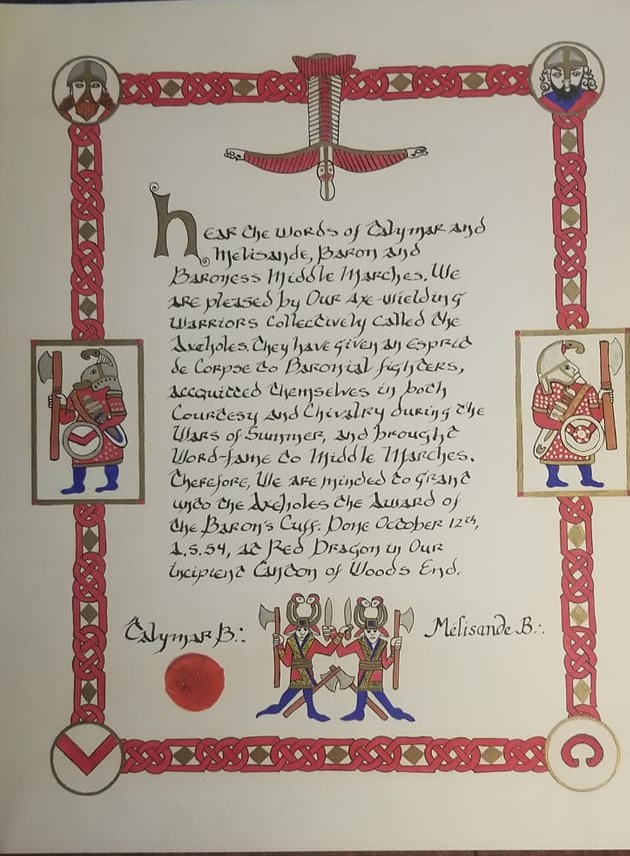 hear the words of Talymar and
Melisande, Baron and
Baroness Middle Marches. We
are pleased by Our axe-wielding
warriors collectively called the
Axeholes. They have given an Esprit
de Corpse to Baronial fighters,
accquitted themselves in both
Courtesy and Chivalry during the
Wars of Summer, and brought
Word-fame to Middle Marches.
Therefore, We are minded to grant
unto the Axeholes the Award of
the Baron's Cuff. Done October 12th,
A.S.54, at Red Dragon in Our
incipient Canton of Woods End.
Talymar B.:. Melisande B.:.